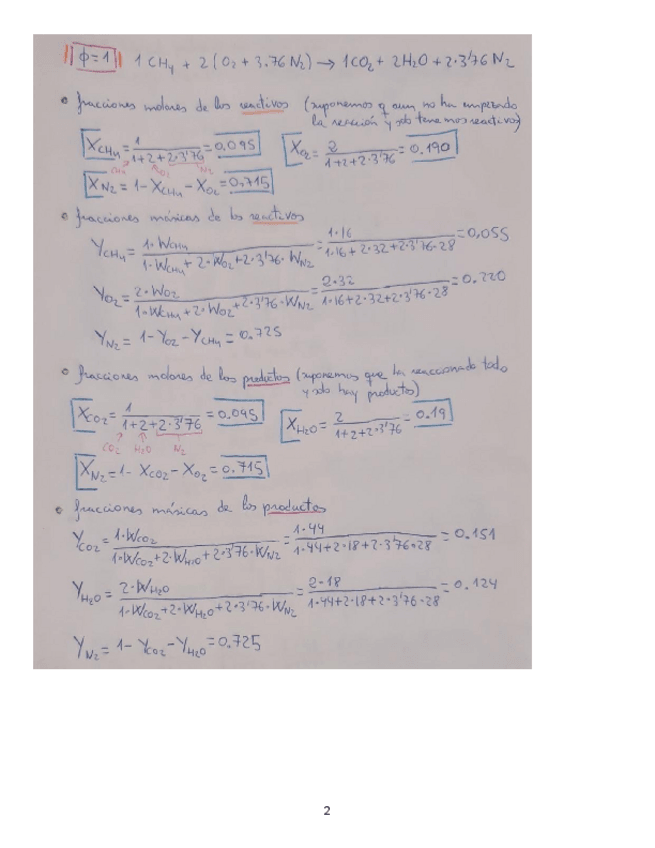 ϕ=1 1 CH₄ + 2 (O₂ + 3.76 N₂) → 1CO₂ + 2H₂O + 2·3'76 N₂
• fracciones molares de los reactivos (suponemos q aun no ha empezado
la reacción y solo tenemos reactivos)
X_CH₄ = 1/(1+2+2·3'76) = 0.095 X_O₂ = 2/(1+2+2·3'76) = 0.190
CH₄ O₂ N₂
X_N₂ = 1 - X_CH₄ - X_O₂ = 0,715
• fracciones másicas de los reactivos
Y_CH₄ = 1·W_CH₄/(1·W_CH₄ + 2·W_O₂ + 2·3'76·W_N₂) = 1·16/(1·16 + 2·32 + 2·3'76·28) = 0,055
Y_O₂ = 2·W_O₂/(1·W_CH₄ + 2·W_O₂ + 2·3'76·W_N₂) = 2·32/(1·16 + 2·32 + 2·3'76·28) = 0.220
Y_N₂ = 1 - Y_O₂ - Y_CH₄ = 0.725
• fracciones molares de los productos (suponemos que ha reaccionado todo
y solo hay productos)
X_CO₂ = 1/(1+2+2·3'76) = 0.095 X_H₂O = 2/(1+2+2·3'76) = 0.19
CO₂ H₂O N₂
X_N₂ = 1 - X_CO₂ - X_O₂ = 0.715
• fracciones másicas de los productos
Y_CO₂ = 1·W_CO₂/(1·W_CO₂ + 2·W_H₂O + 2·3'76·W_N₂) = 1·44/(1·44 + 2·18 + 2·3'76·28) = 0.151
Y_H₂O = 2·W_H₂O/(1·W_CO₂ + 2·W_H₂O + 2·3'76·W_N₂) = 2·18/(1·44 + 2·18 + 2·3'76·28) = 0.124
Y_N₂ = 1 - Y_CO₂ - Y_H₂O = 0.725
2